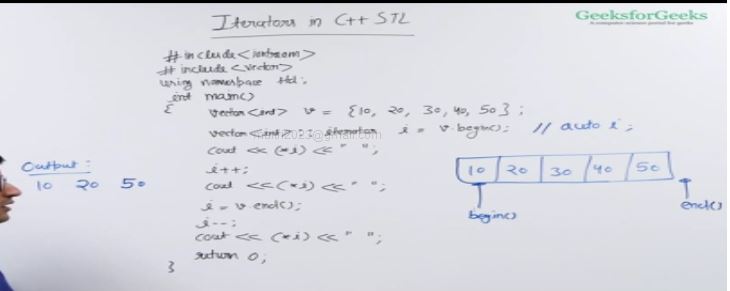 Iterators in C++ STL
GeeksforGeeks
A computer science portal for geeks
#include<iostream>
#include <vector>
using namespace std;
int main()
{
vector<int> v = {10, 20, 30, 40, 50};
vector<int>:: iterator i = v.begin(); // auto i;
cout << (*i) << " ";
i++;
cout << (*i) << " ";
i = v.end();
i--;
cout << (*i) << " ";
return 0;
}
Output:
10 20 50
10 20 30 40 50
begin() end()